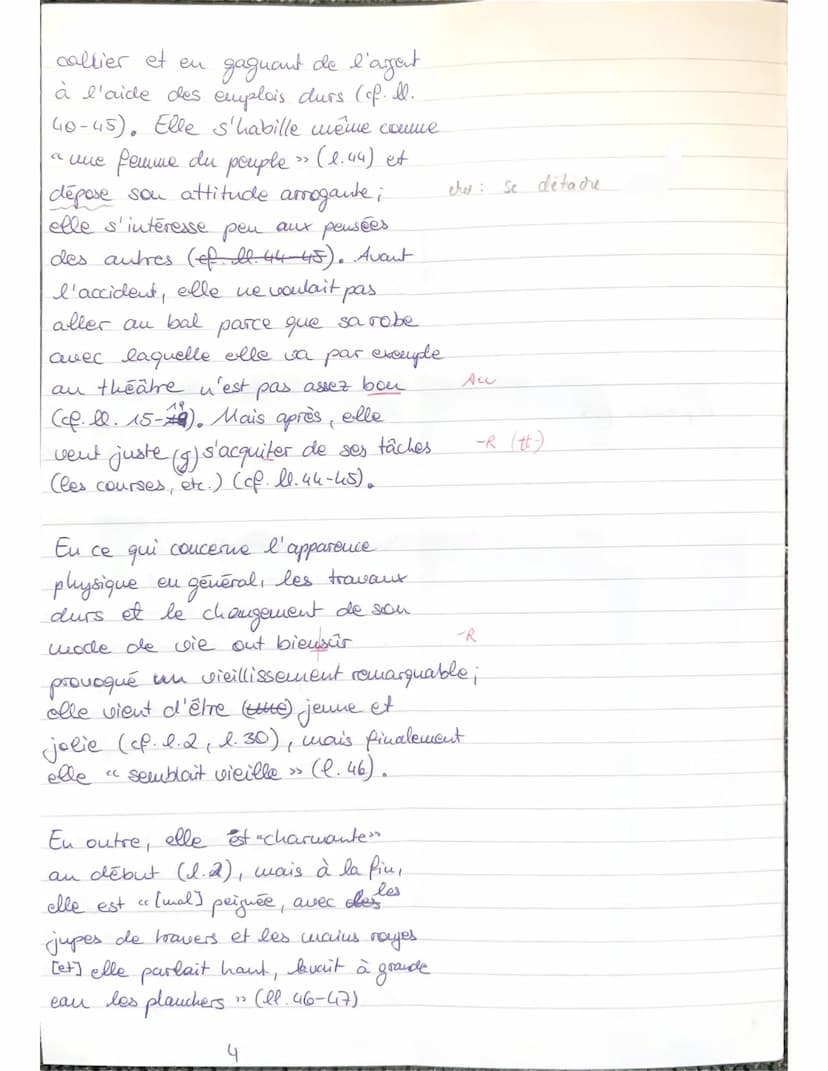 collier et en gagnant de l'argent
à l'aide des emplois durs (cf. ll.
40-45). Elle s'habille même comme
« une femme du peuple » (l.44) et
dépose son attitude arrogante;
elle s'intéresse peu aux pensées
des autres (cf. ll. 44-45). Avant
l'accident, elle ne voulait pas
aller au bal parce que sa robe
avec laquelle elle va par exemple
au théâtre n'est pas assez bon
(cf. ll. 15-19). Mais après, elle
veut juste (g) s'acquiter de ses tâches
(les courses, etc.) (cf. ll. 44-45).
se détache
Acc
-R (tt-)
En ce qui concerne l'apparence
physique en général, les travaux
durs et le changement de son
mode de vie ont biensûr
-R
provoqué un vieillissement remarquable;
elle vient d'être jeune et
jolie (cf. l.2, l.30), mais finalement
elle « semblait vieille » (l. 46).
En outre, elle est «charmante»
au début (l.2), mais à la fin,
elle est « [mal] peignée, avec les
jupes de travers et les mains rouges
[et] elle parlait haut, lavait à grande
eau les planchers » (ll. 46-47)
4